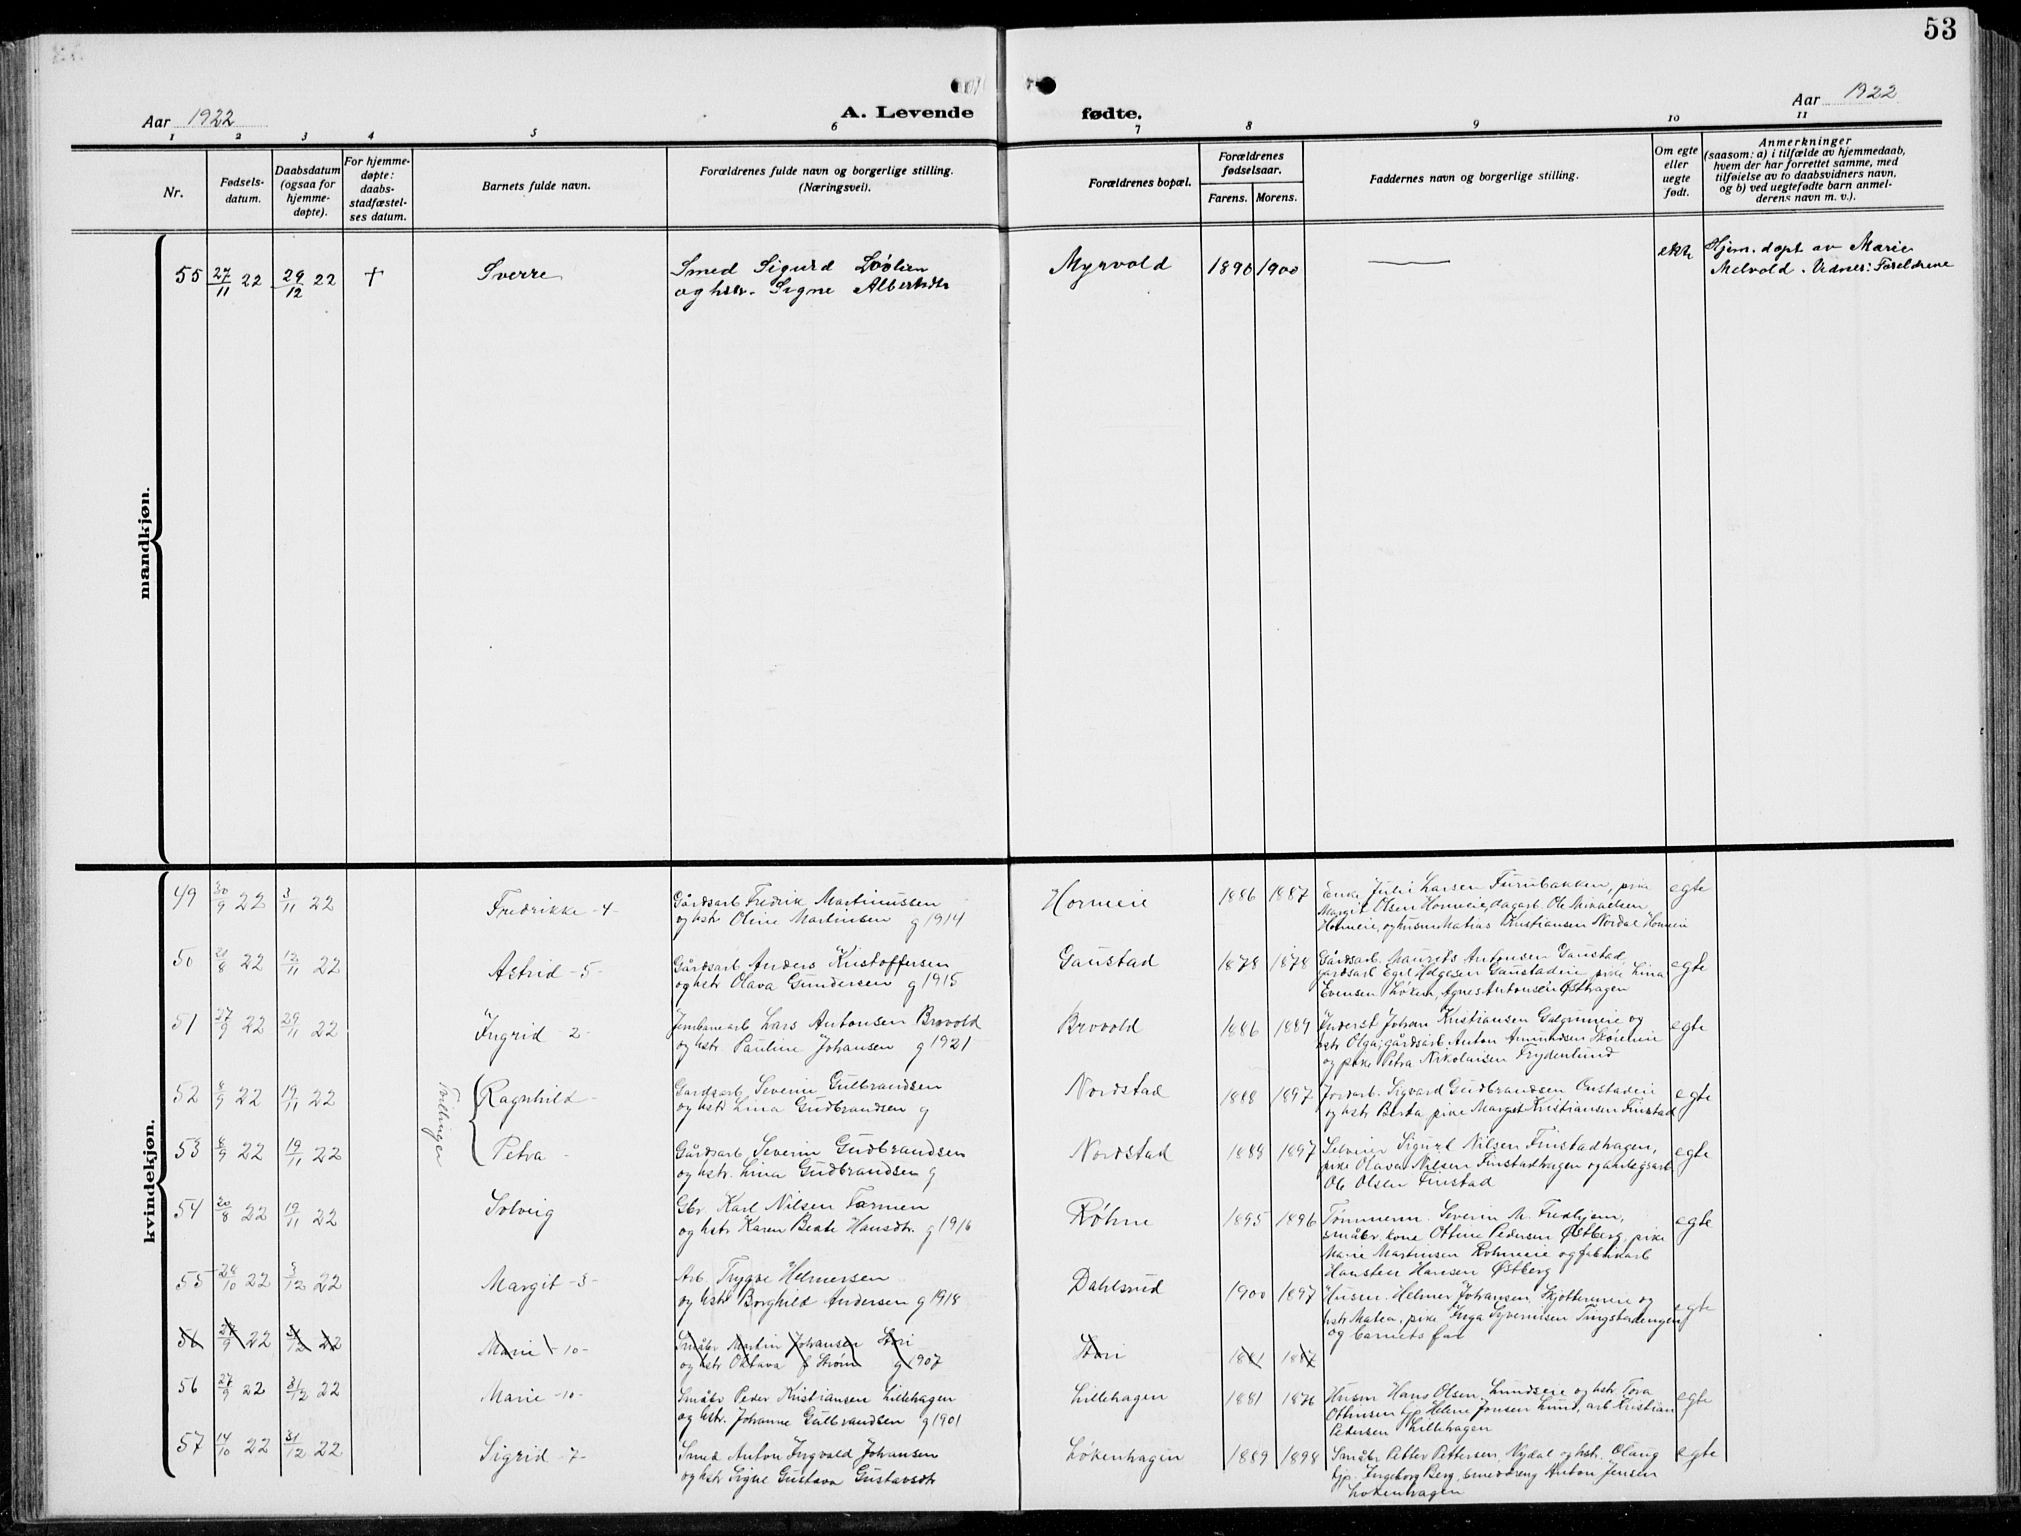 53
Aar 1922
A. Levende fødte.
Aar 1922
1 2 3 4 5 6 7 8 9 10 11
Nr.
Fødsels-
datum.
Daabsdatum
(ogsaa for
hjemme-
døpte).
For hjemme-
døpte:
daabs-
stadfæstel-
ses datum.
Barnets fulde navn.
Forældrenes fulde navn og borgerlige stilling.
(Næringsvei).
Forældrenes bopæl.
Forældrenes
fødselsaar.
Farens. Morens.
Faddernes navn og borgerlige stilling.
Om egte
eller
uegte
født.
Anmerkninger
(saasom: a) i tilfælde av hjemmedaab,
hvem der har forrettet samme, med
tilføielse av to daabsvidners navn,
og b) ved uegtefødte barn anmel-
derens navn m. v.).
mandkjøn.
55 27/11 22 29/12 22 + Sverre Smed Sigurd Myrvold 1890 1900 — Hjem. døpt av Marie
og hstr. Signe Albertsdtr Melvold. Vidner: Foreldrene
kvindekjøn.
49 30/9 22 3/11 22 Fredrikke -4- Gårdsarb Fredrik Martinussen Horneie 1886 1887 Enke Julie Larsen Furubakken, pike egte
og hstr Oline Martinsen g 1914 Margit Olsen Horneie, dagarb. Ole Mikaelsen
Horneie, og husm Matias Kristiansen Nordal Horneie
50 21/8 22 12/11 22 Astrid -5- Gårdsarb Anders Kristoffersen Gaustad 1878 1878 Gårdsarb Maurits Antonsen Gaustad, egte
og hstr Olava Gundersen g 1915 gårdsarb Egil Helgesen Gaustadeie pike Lina
Evensen Løken, Agnes Antonsen Østhagen
51 27/9 22 29/11 22 Ingrid -2- Jernbanearb Lars Antonsen Brovold Brovold 1886 1889 Johan Kristiansen Galgumeie og egte
og hstr. Pauline Johansen g 1921 hstr Olga; gårdsarb. Anton Amundsen
og pike Petra Nikolaisen Frydenlund
Tvillinger
52 8/9 22 19/11 22 Ragnhild - Gardsarb Severin Gulbrandsen Nordstad 1888 1897 Jordarb. Sigvard Gudbrandsen egte
og hstr Lina Gudbrandsen g og hstr Berta, pike Margit Kristiansen Finstad
53 8/9 22 19/11 22 Petra - Gårdsarb Severin Gudbrandsen Nordstad 1888 1897 Selveier Sigurd Nilsen Finstadhagen, egte
og hstr. Lina Gudbrandsen g pike Olava Nilsen Finstadhagen og
Ole Olsen Finstad
54 20/8 22 19/11 22 Solveig Gbr. Karl Nilsen Farmen Røhne 1895 1896 Tømmerm. Severin M. Fredhjem, egte
og hstr Karen Beate Hansdtr. g 1916 småbr. kone Ottine Pedersen Østberg, pike
Marie Martinsen Rohneeie og fabrikarb
Hansten Hansen Østberg
55 28/10 22 3/12 22 Margit -3- Arb. Trygve Helmersen Dahlsrud 1900 1897 Husm. Helmer Johansen, Skjottereneie og egte
og hstr Borghild Andersen g 1918 hstr Matea, pike Inga Syvertsen Tingstadengen
og barnets far
56 27/9 22 31/12 22 Marie -10- Småbr Martin Johansen Stori Stori 1881 1887
og hstr Oktava f Strøm g 1907
56 27/9 22 31/12 22 Marie -10- Småbr Peder Kristiansen Lillehagen Lillehagen 1881 1876 Husm Hans Olsen Lundseie og hstr Tora egte
og hstr. Johanne Gulbrandsen g 1901 Ottinsen tjp Helene Jonsen Lund, arb Kristian
Pedersen Lillehagen
57 14/10 22 31/12 22 Sigrid -7- Smed Anton Ingvald Johansen Løkenhagen 1889 1898 Småbr Petter Pettersen Nydal og hstr. Olaug egte
og hstr Signe Gustava Gustavsdtr tjp. Ingeborg Berg, smeddreng Anton Jensen
Løkenhagen